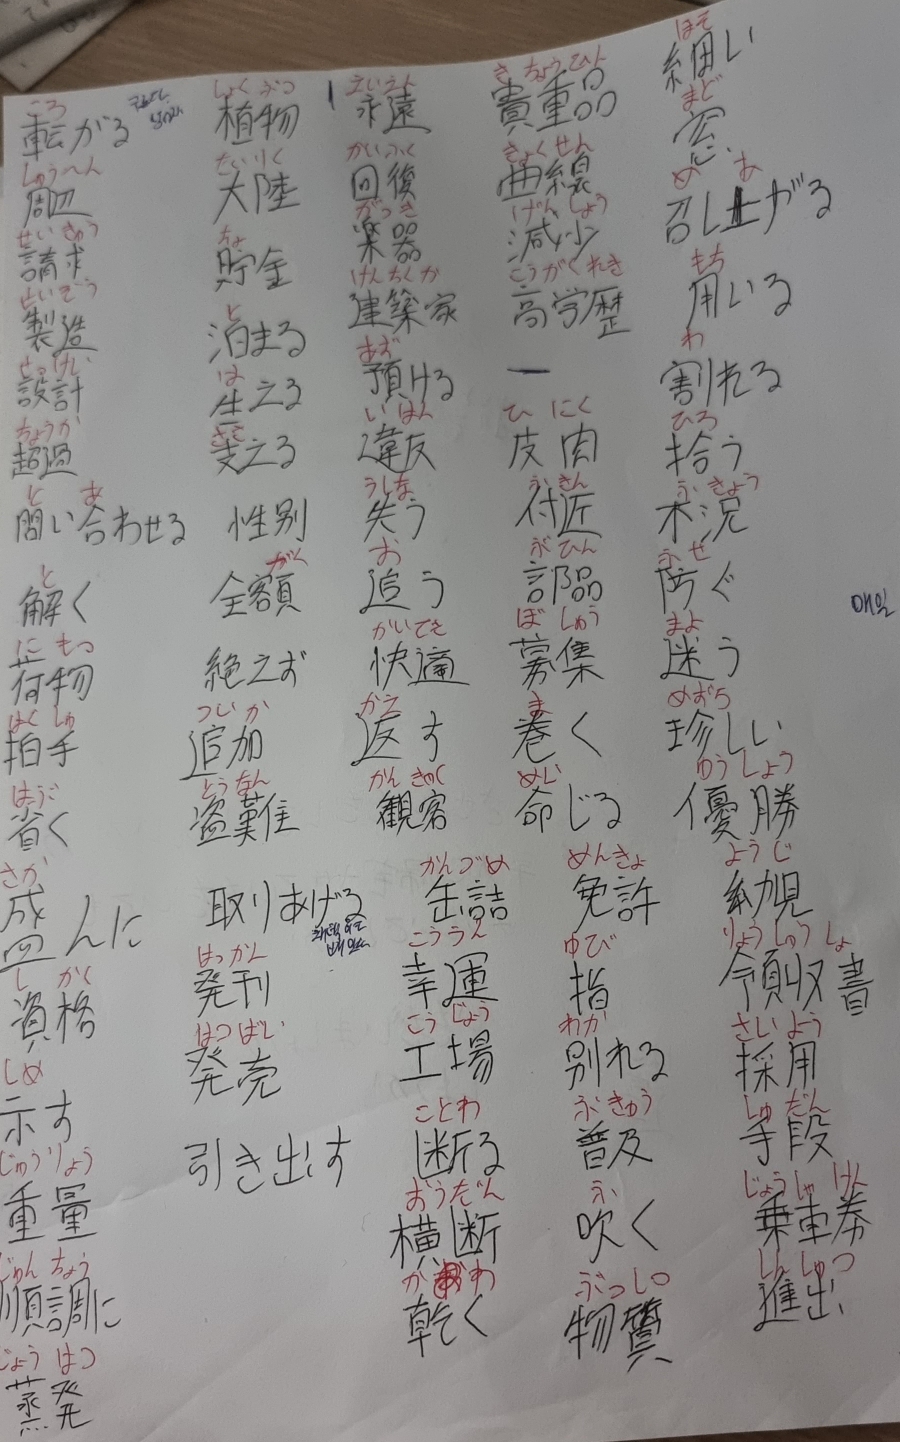 ころ
転がる
しゅうへん
周辺
せいきゅう
請求
せいぞう
製造
せっけい
設計
ちょうか
超過
と あ
問い合わせる
と
解く
にもつ
荷物
はくしゅ
拍手
はぶ
省く
さか
盛んに
しかく
資格
しめ
示す
じゅうりょう
重量
じゅんちょう
順調に
じょうはつ
蒸発
しょくぶつ
植物
たいりく
大陸
ちょ
貯金
と
泊まる
は
生える
ささ
支える
性別
がく
全額
絶えず
ついか
追加
とうなん
盗難
取りあげる
はっかん
発刊
はつばい
発売
引き出す
えいえん
永遠
かいふく
回復
がっき
楽器
けんちくか
建築家
あず
預ける
いはん
違反
うしな
失う
お
追う
かいてき
快適
かえ
返す
かんきゃく
観客
かんづめ
缶詰
こううん
幸運
こうじょう
工場
ことわ
断る
おうだん
横断
かわ
乾く
きちょうひん
貴重品
きょくせん
曲線
げんしょう
減少
こうがくれき
高学歴
ひにく
皮肉
ふきん
付近
ぶひん
部品
ぼしゅう
募集
ま
巻く
めい
命じる
めんきょ
免許
ゆび
指
わか
別れる
ふきゅう
普及
ふ
吹く
ぶっしつ
物質
ほそ
細い
まど
窓
め あ
召し上がる
もち
用いる
わ
割れる
ひろ
拾う
ふきょう
不況
ふせ
防ぐ
まよ
迷う
めずら
珍しい
ゆうしょう
優勝
ようじ
幼児
りょうしゅうしょ
領収書
さいよう
採用
しゅだん
手段
じょうしゃけん
乗車券
しんしゅつ
進出
매일